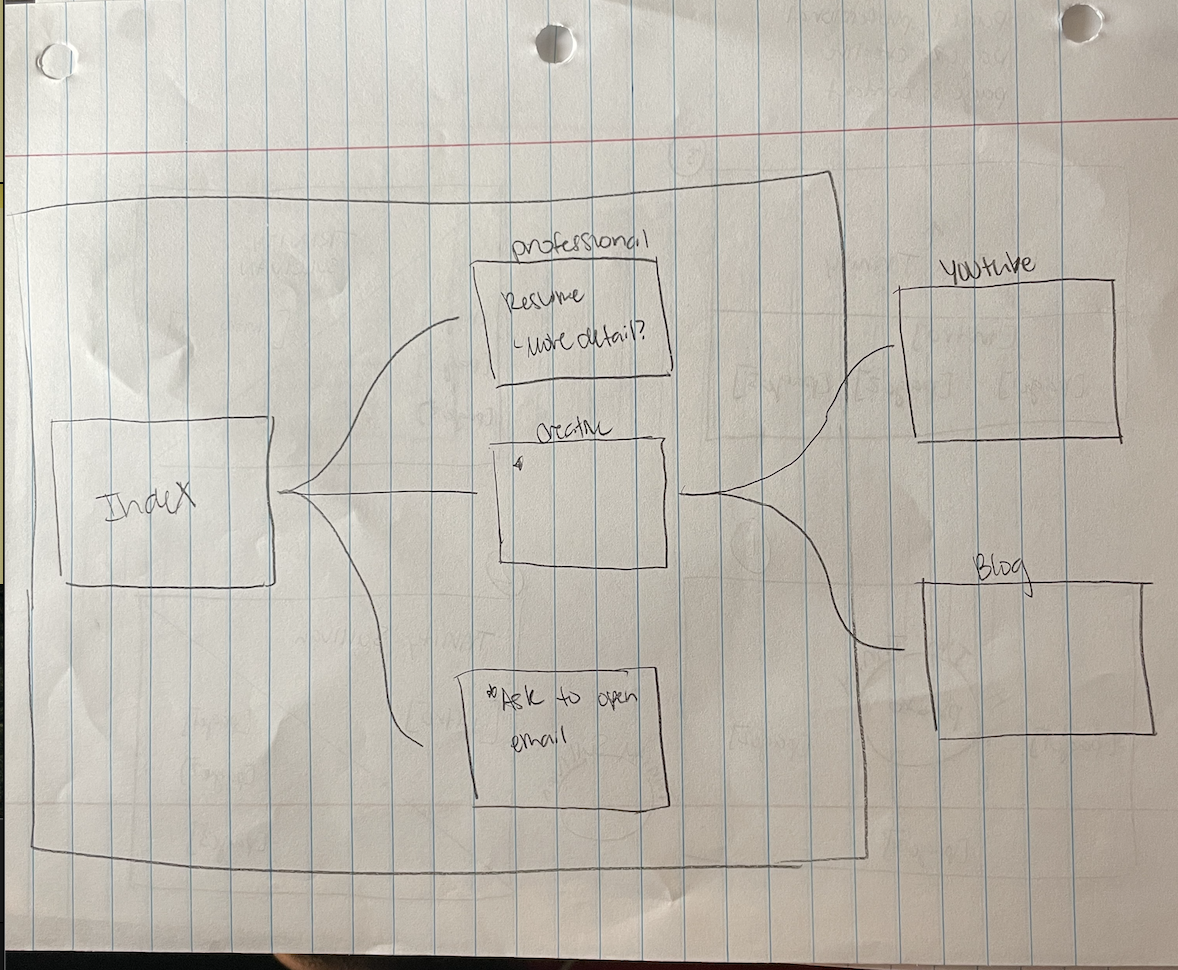 professional
Resume
- More detail?
Index
creative
*Ask to open
email
Youtube
Blog